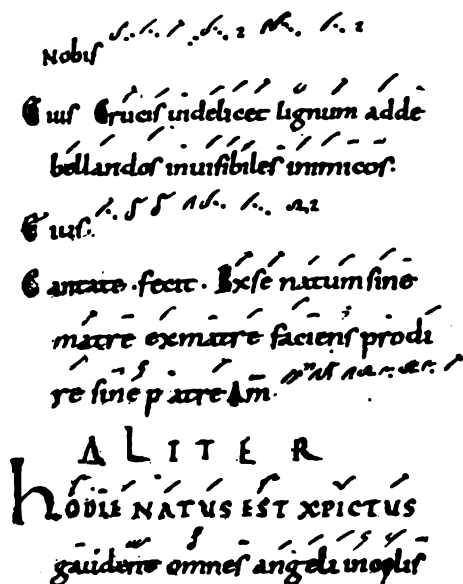 nobis
Eius Crucis videlicet lignum addē
bellandos inuisibiles inimicos.
Eius.
Cantate · fecit · Exse natum sine
matre exmatre faciens prodi
re sine patre Am̄
ALITER
hODIE NATUS EST XPICTUS
gaudent omnes angeli in